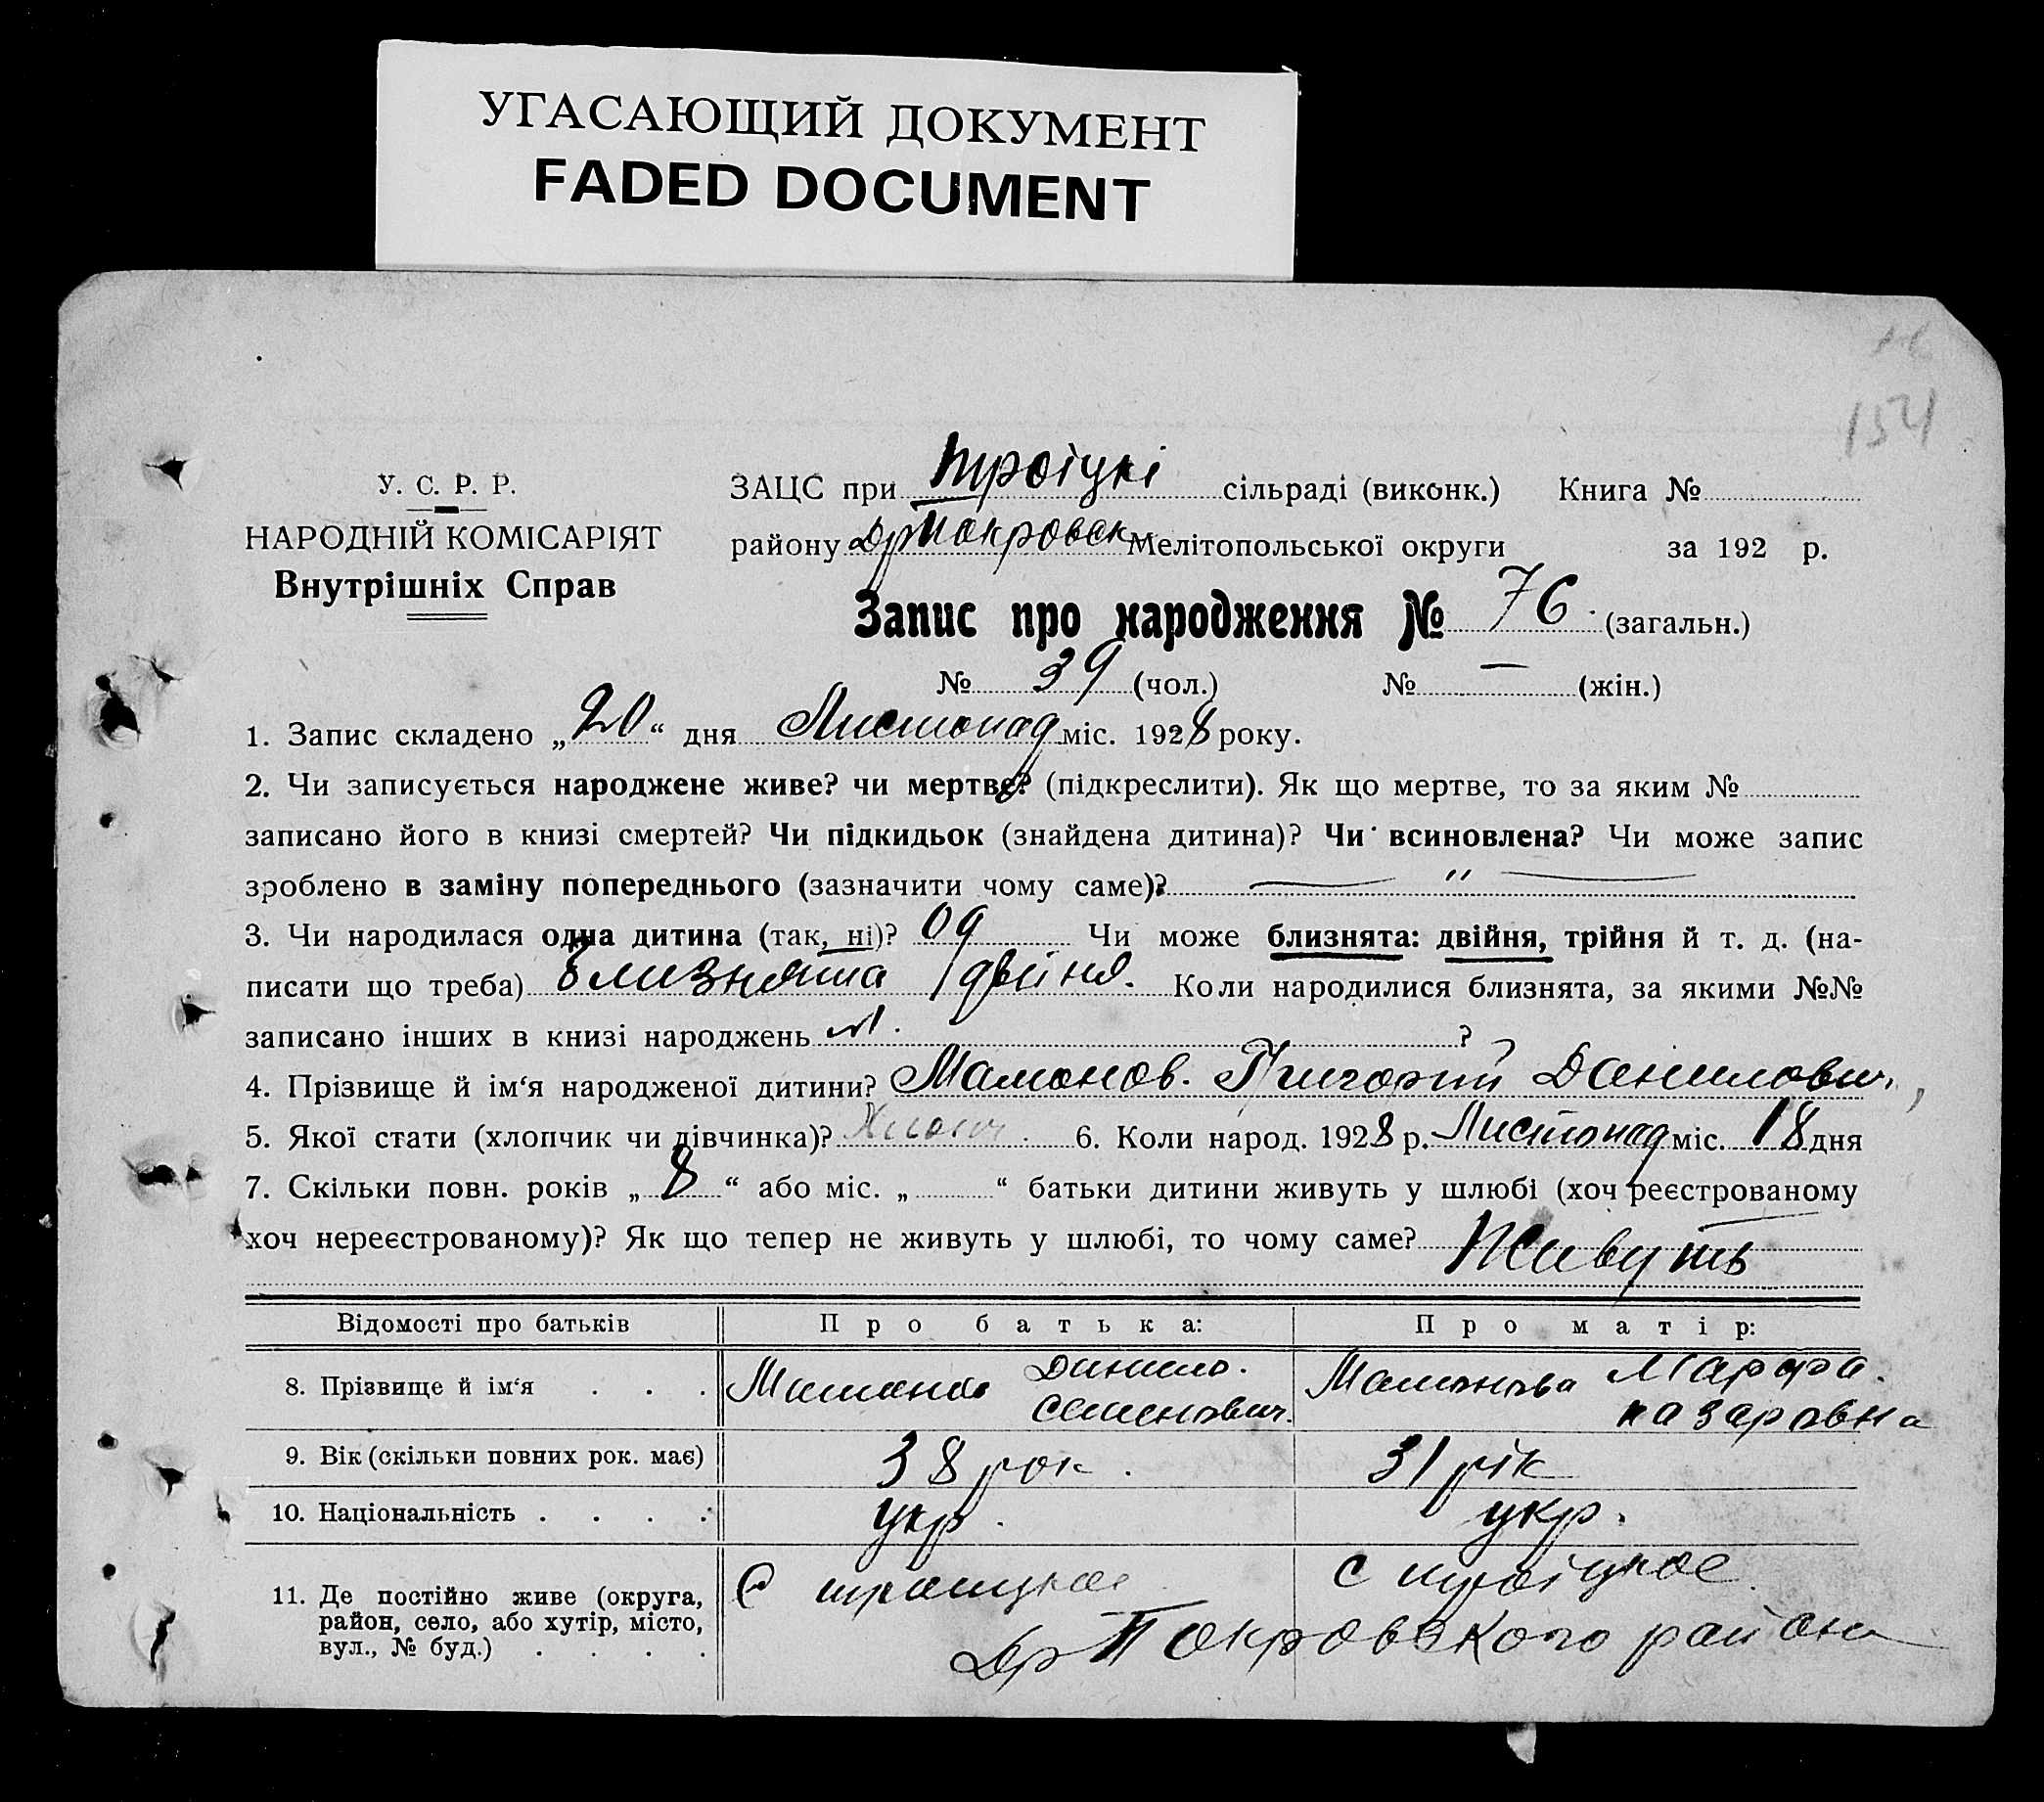 УГАСАЮЩИЙ ДОКУМЕНТ
FADED DOCUMENT
154
У. С. Р. Р.
НАРОДНІЙ КОМІСАРІЯТ
Внутрішніх Справ
ЗАЦС при Троіцкі сільраді (виконк.) Книга №
району Др Покровск Мелітопольської округи за 192 р.
Запис про народження № 76. (загальн.)
№ 39 (чол.) № — (жін.)
1. Запис складено „20“ дня Листопад міс. 1928 року.
2. Чи записується народжене живе? чи мертве? (підкреслити). Як що мертве, то за яким №
записано його в книзі смертей? Чи підкидьок (знайдена дитина)? Чи всиновлена? Чи може запис
зроблено в заміну попереднього (зазначити чому саме)? — " —
3. Чи народилася одна дитина (так, ні)? Чи може близнята: двійня, трійня й т. д. (на-
писати що треба) близнята двійня. Коли народилися близнята, за якими №№
записано інших в книзі народжень ?
4. Прізвище й ім‘я народженої дитини? Мамонов. Григорій Данилович
5. Якої стати (хлопчик чи дівчинка)? Хлопч. 6. Коли народ. 1928 р. Листопад міс. 18 дня
7. Скільки повн. років „8“ або міс. „ “ батьки дитини живуть у шлюбі (хоч реєстрованому
хоч нереєстрованому)? Як що тепер не живуть у шлюбі, то чому саме? Живуть
Відомості про батьків Про батька: Про матір:
8. Прізвище й ім‘я . . . Мамонов Данило. Семенович. Мамонова Марфа. Назаровна
9. Вік (скільки повних рок. має) 38 рок. 31 рік
10. Національність . . . . укр. укр.
11. Де постійно живе (округа, район, село, або хутір, місто, вул., № буд.) . . . . С троицкое с троіцкое
Др Покровского района